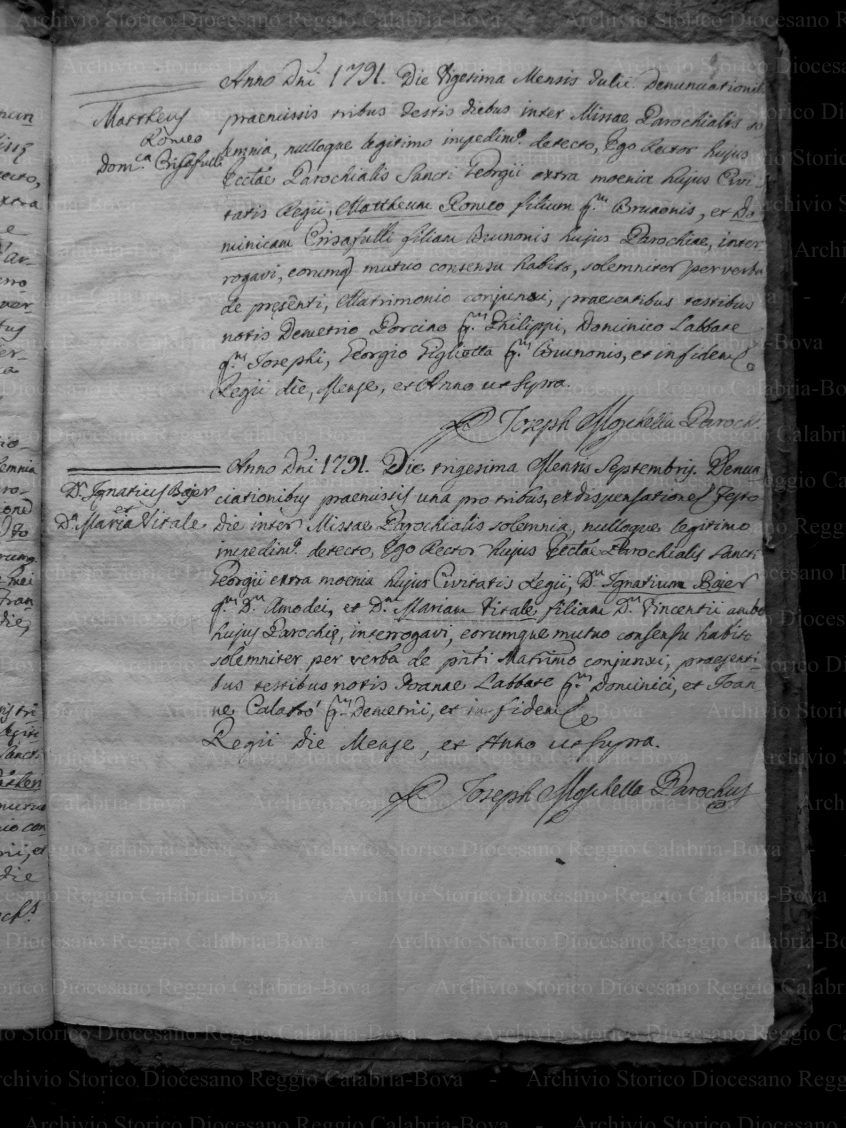 Anno Dni 1791. Die Vigesima Mensis Julii. Denunciationib.
Mattheus
Romeo
Dom.ca Crisafulli
praemissis tribus Festis diebus inter Missae Parochialis so
lemnia, nulloque legitimo impedim.to detecto, Ego Rector hujus
Ecctae Parochialis Sancti Georgii extra moenia hujus Civi-
tatis Regii, Mattheum Romeo filium q.m Brunonis, et Do-
minicam Crisafulli filiam Brunonis hujus Parochiae, inter
rogavi, eorumq mutuo consensu habito, solemniter per verba
de presenti, Matrimonio conjunxi, praesentibus testibus
notis Demetrio Porcino q.m Philippi, Dominico Labbate
q.m Josephi, Georgio Giglietta q.m Brunonis, et in fidem
Regii die, Mense, et Anno ut supra.
Joseph Moschella Paroch.
Anno Dni 1791. Die trigesima Mensis Septembris. Denun
D. Ignatius Bajer
et
D.a Maria Vitale
ciationibus praemissis una pro tribus, ex dispensatione, Festo
die inter Missae Parochialis solemnia, nulloque legitimo
impedim.to detecto, Ego Rector hujus Ecctae Parochialis Sancti
Georgii extra moenia hujus Civitatis Regii, D.m Ignatium Bajer
q.m D.ni Amodei, et D.m Mariam Vitale filiam D.ni Vincentii ambo
hujus Parochie, interrogavi, eorumque mutuo consensu habito
solemniter per verba de pnti Matrimo conjunxi, praesenti-
bus testibus notis Joanne Labbate q.m Dominici, et Joan
ne Calatrò q.m Demetrii, et in fidem
Regii die Mense, et Anno ut supra.
Joseph Moschella Parochus
Archivio Storico Diocesano Reggio Calabria-Bova